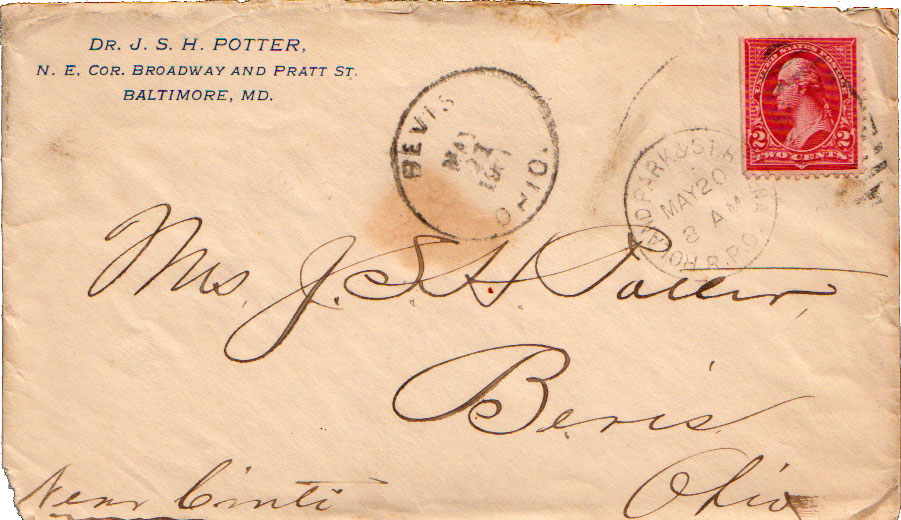 DR. J. S. H. POTTER,
N. E. COR. BROADWAY AND PRATT ST.
BALTIMORE, MD.
BEVIS
MAY
21
OHIO.
UNITED STATES POSTAGE
2 2
TWO CENTS
AND PARK & ST. H
MAY 20
8 AM
R.P.O.
Mrs. J. S. H. Potter,
Bevis
Near Cinti
Ohio